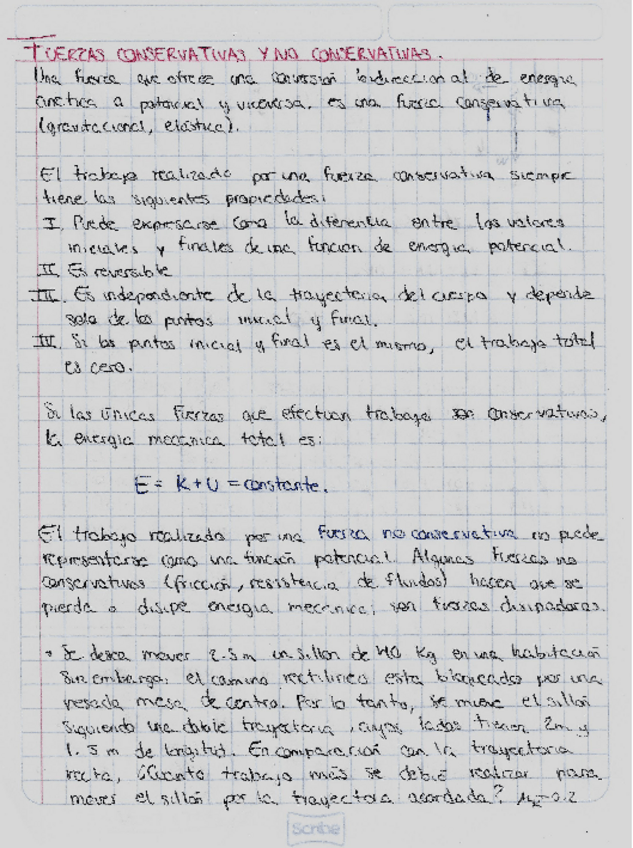 FUERZAS CONSERVATIVAS Y NO CONSERVATIVAS.
Una fuerza que ofrece una conversión bidireccional de energía
cinética a potencial y viceversa, es una fuerza conservativa
(gravitacional, elástica).
El trabajo realizado por una fuerza conservativa siempre
tiene las siguientes propiedades:
I. Puede expresarse como la diferencia entre los valores
iniciales y finales de una función de energía potencial.
II. Es reversible
III. Es independiente de la trayectoria del cuerpo y depende
solo de los puntos inicial y final.
IV. Si los puntos inicial y final es el mismo, el trabajo total
es cero.
Si las únicas fuerzas que efectuan trabajo son conservativas,
la energía mecánica total es:
E = K + U = constante.
El trabajo realizado por una fuerza no conservativa no puede
representarse como una función potencial. Algunas fuerzas no
conservativas (fricción, resistencia de fluidos) hacen que se
pierda o disipe energía mecánica; son fuerzas disipadoras.
• Se desea mover 2.5 m un sillón de 40 kg en una habitación
Sin embargo, el camino rectilíneo esta bloqueado por una
pesada mesa de centro. Por lo tanto, se mueve el sillón
siguiendo una doble trayectoria, cuyos lados tienen 2m y
1.5 m de longitut. En comparación con la trayectoria
recta, ¿Cuánto trabajo más se debió realizar para
mover el sillón por la trayectora acordada? μk=0.2
Scribe